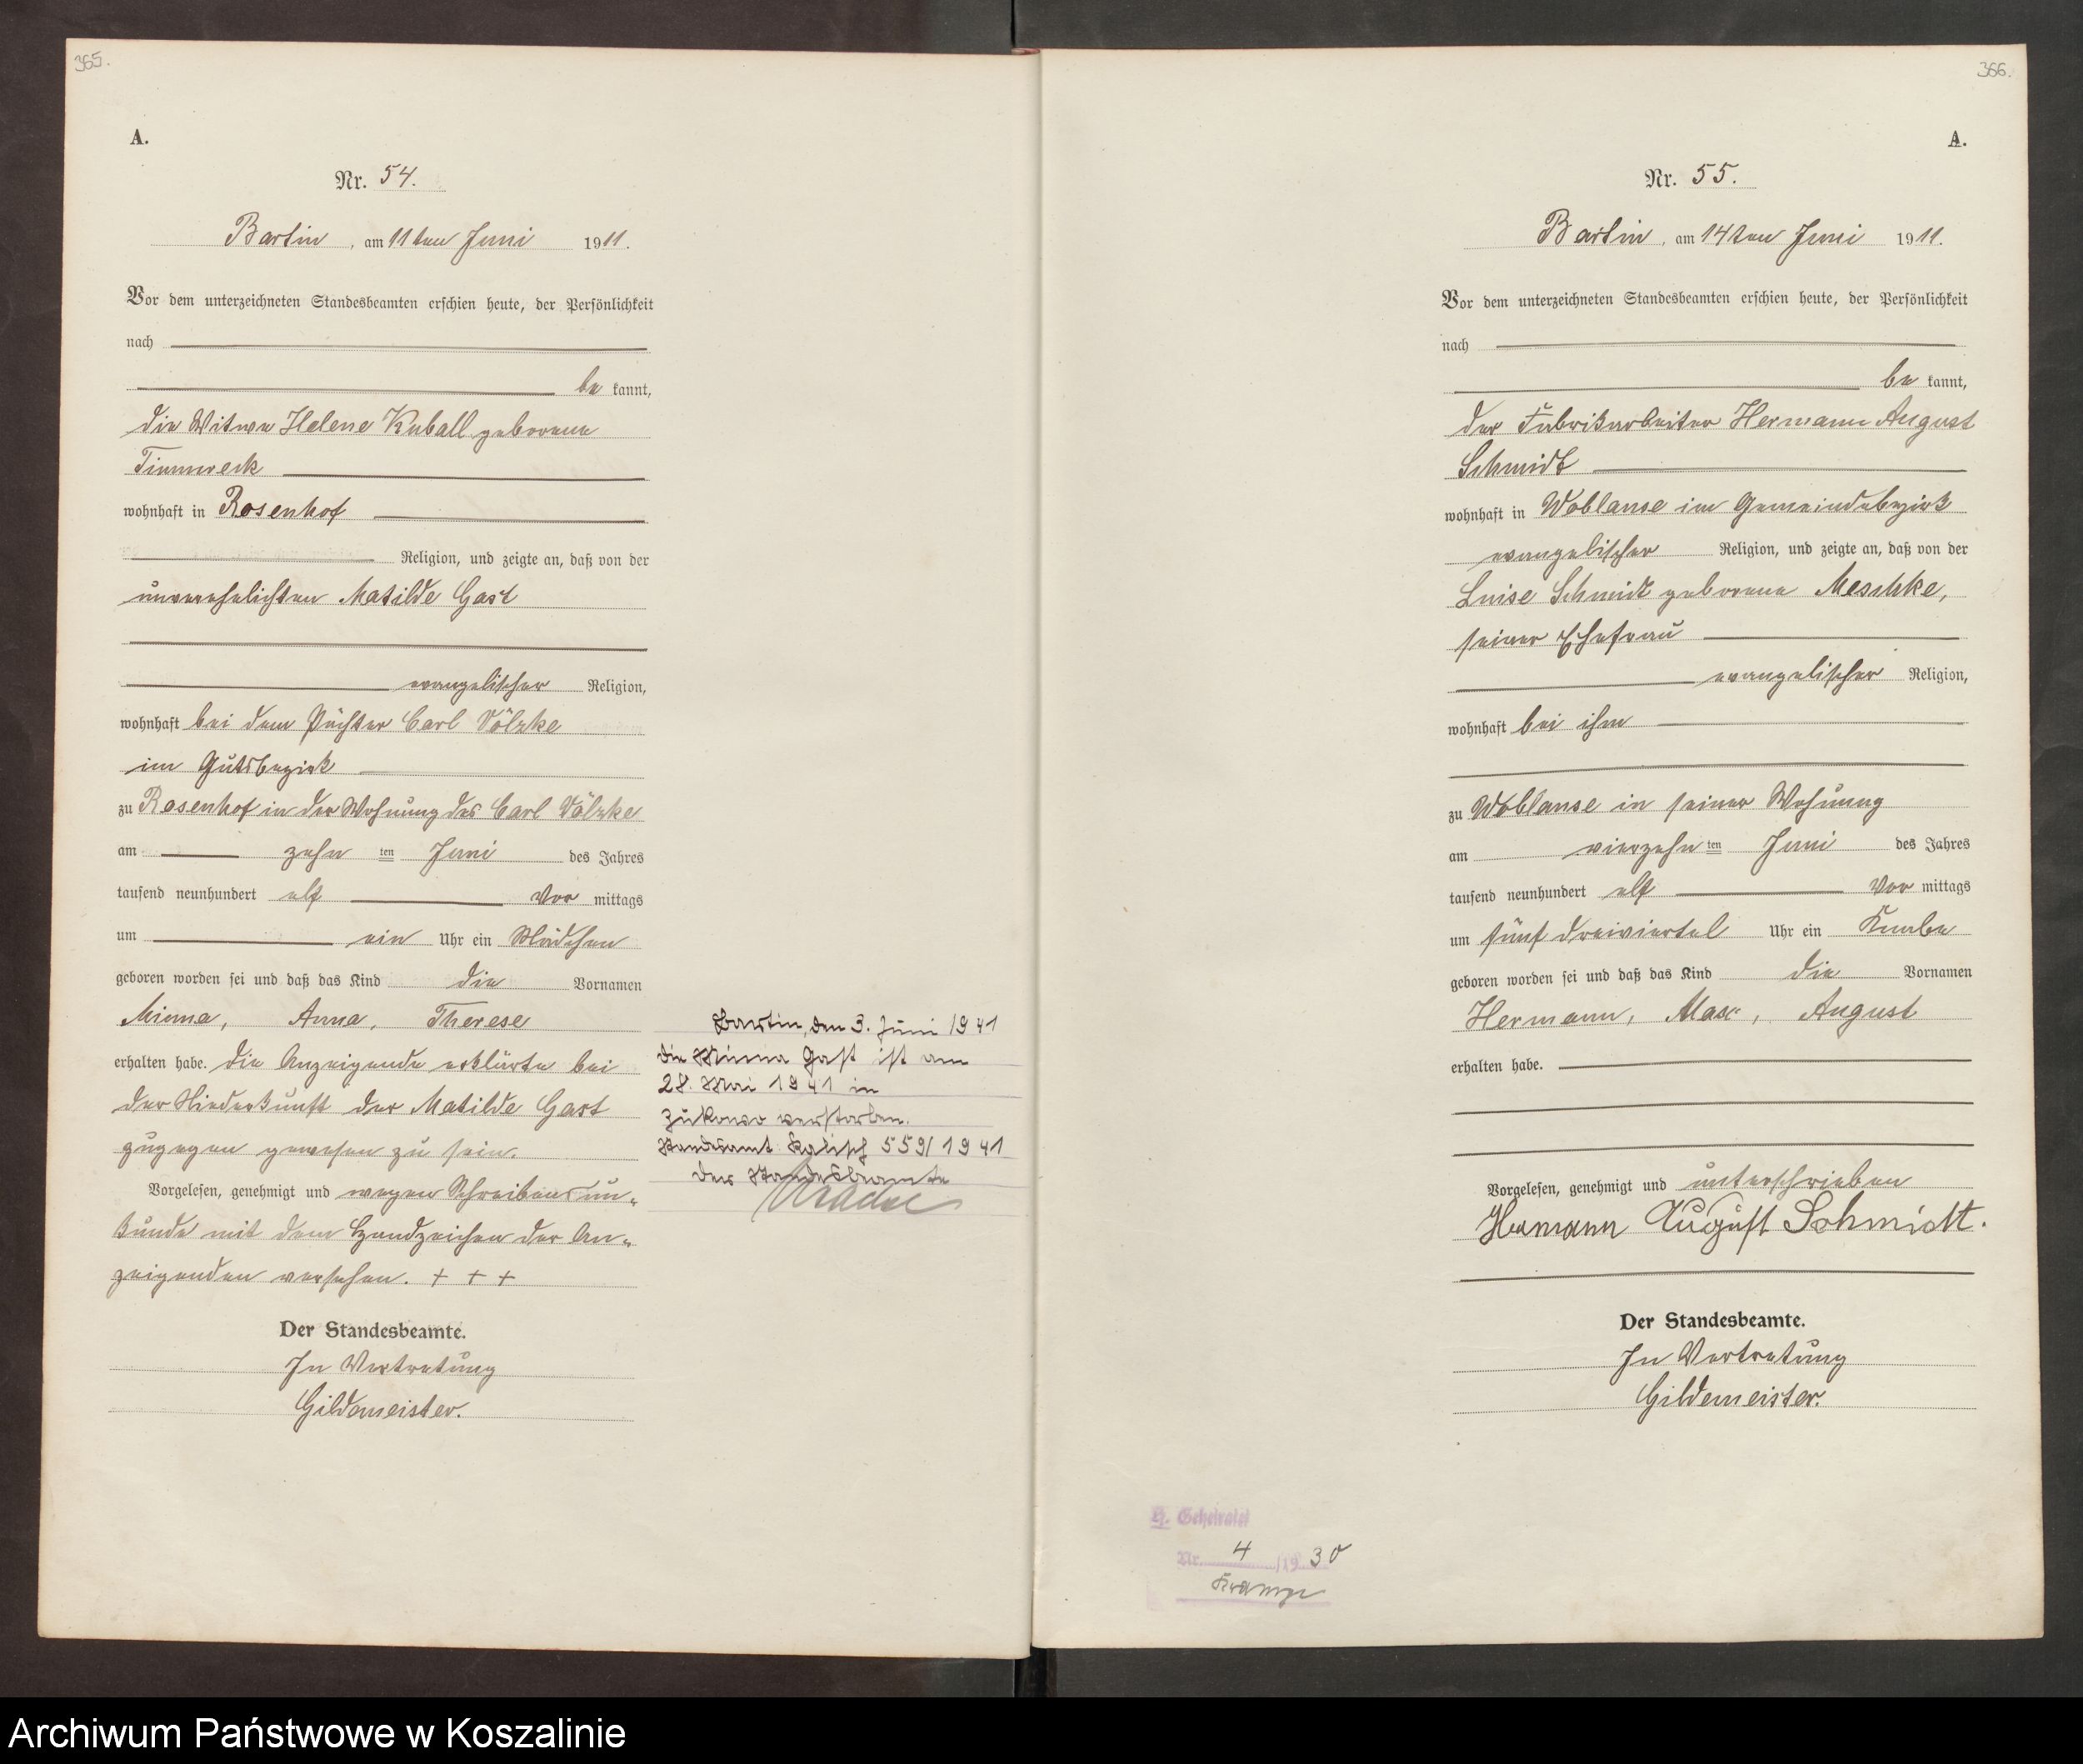 365.
A.
Nr. 54.
Bartin, am 11ten Juni 1911.
Vor dem unterzeichneten Standesbeamten erschien heute, der Persönlichkeit
nach
be kannt,
die Witwe Helene Kuball geborene
Timmreck
wohnhaft in Rosenhof
Religion, und zeigte an, daß von der
unverehelichten Matilde Gast
evangelischer Religion,
wohnhaft bei dem Pächter Carl Völzke
im Gutsbezirk
zu Rosenhof in der Wohnung des Carl Völzke
am zehn ten Juni des Jahres
tausend neunhundert elf Vor mittags
um ein Uhr ein Mädchen
geboren worden sei und daß das Kind die Vornamen
Minna, Anna, Therese
erhalten habe. Die Anzeigende erklärte bei
der Niederkunft der Matilde Gast
zugegen gewesen zu sein.
Vorgelesen, genehmigt und wegen Schreibens un-
kunde mit dem Handzeichen der An-
zeigenden versehen. + + +
Der Standesbeamte.
In Vertretung
Gildemeister.
Bartin, den 3. Juni 1941
Die Minna Gast ist am
28. Mai 1941 in
Zukowo verstorben.
Standesamt Kalisch 559/1941
Der Standesbeamte
366.
A.
Nr. 55.
Bartin, am 14ten Juni 1911.
Vor dem unterzeichneten Standesbeamten erschien heute, der Persönlichkeit
nach
be kannt,
der Fabrikarbeiter Hermann August
Schmidt
wohnhaft in Woblanse im Gemeindebezirk
evangelischer Religion, und zeigte an, daß von der
Luise Schmidt geborene Meschke,
seiner Ehefrau
evangelischer Religion,
wohnhaft bei ihm
zu Woblanse in seiner Wohnung
am vierzehn ten Juni des Jahres
tausend neunhundert elf Vor mittags
um fünf dreiviertel Uhr ein Knabe
geboren worden sei und daß das Kind die Vornamen
Hermann, Max, August
erhalten habe.
Vorgelesen, genehmigt und unterschrieben
Hermann August Schmidt.
Der Standesbeamte.
In Vertretung
Gildemeister.
Nr. 4 /19 30
Archiwum Państwowe w Koszalinie